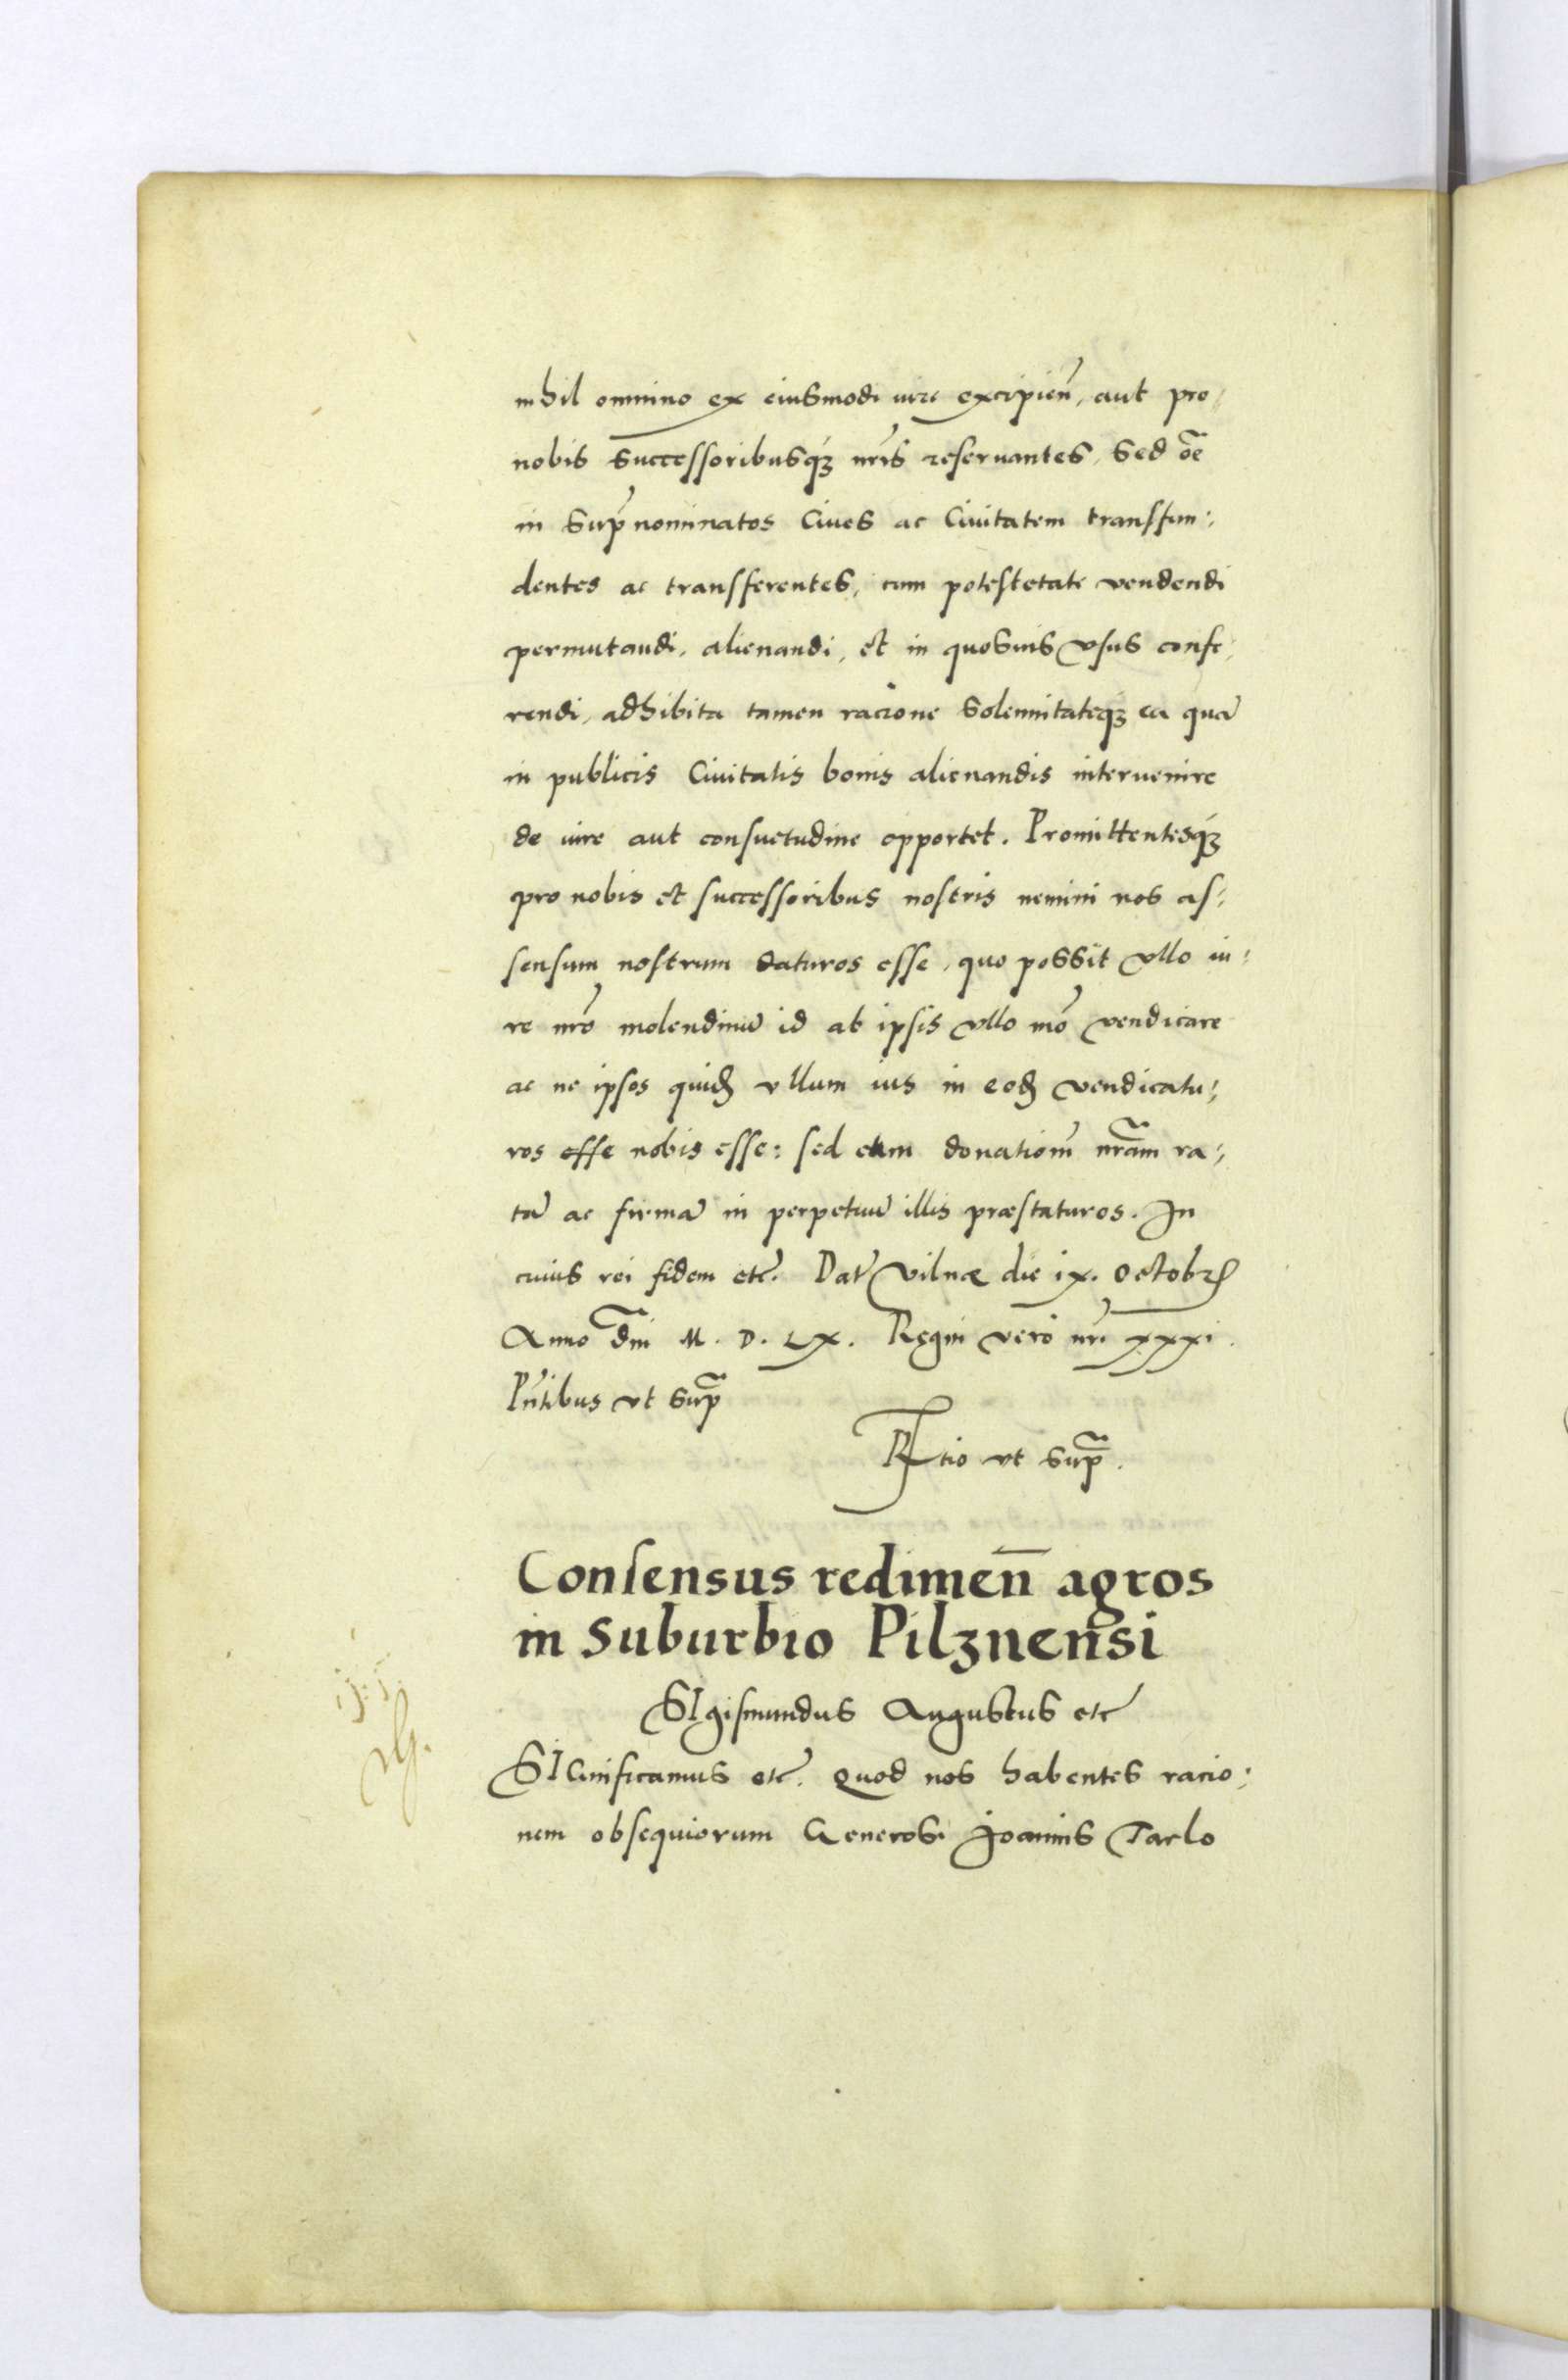 nihil omnino ex eiusmodi iure excipien̄, aut pro,
nobis Successoribusqꝫ nr̄is reseruantes, Sed oē
in Supr̄nominatos Ciues ac Ciuitatem transfun:
dentes ac transferentes, cum potestetate vendendi
permutandi, alienandi, et in quosuis vsus confe,
rendi, adhibita tamen racione Solennitateqꝫ ea quā
in publicis Ciuitatis bonis alienandis interuenire
de iure aut consuetudine opportet. Promittentesqꝫ
pro nobis et successoribus nostris nemini nos as,
sensum nostrum daturos esse, quo possit vllo iu:
re nr̄o molendinū id ab ipsis vllo mō vendicare
ac ne ipsos quiđ vllum ius in eođ vendicatu;
ros esse nobis esse: sed eam donationē nr̄am ra,
tā ac firmā in perpetuū illis præstaturos. In
cuius rei fidem etc̄. Dat̄ Vilnæ die ix. Octobrꝭ
Anno dn̄i M. D. LX. Regni vero nr̄i xxxi.
Pn̄tibus vt sup̄
Rtio vt sup̄.
Consensus redimen̄ agros
in Suburbio Pilznensi
SIgismundus Augustus etc̄
SIGnificamus etc̄. Quod nos habentes racio:
nem obsequiorum Generosi Joannis Tarlo